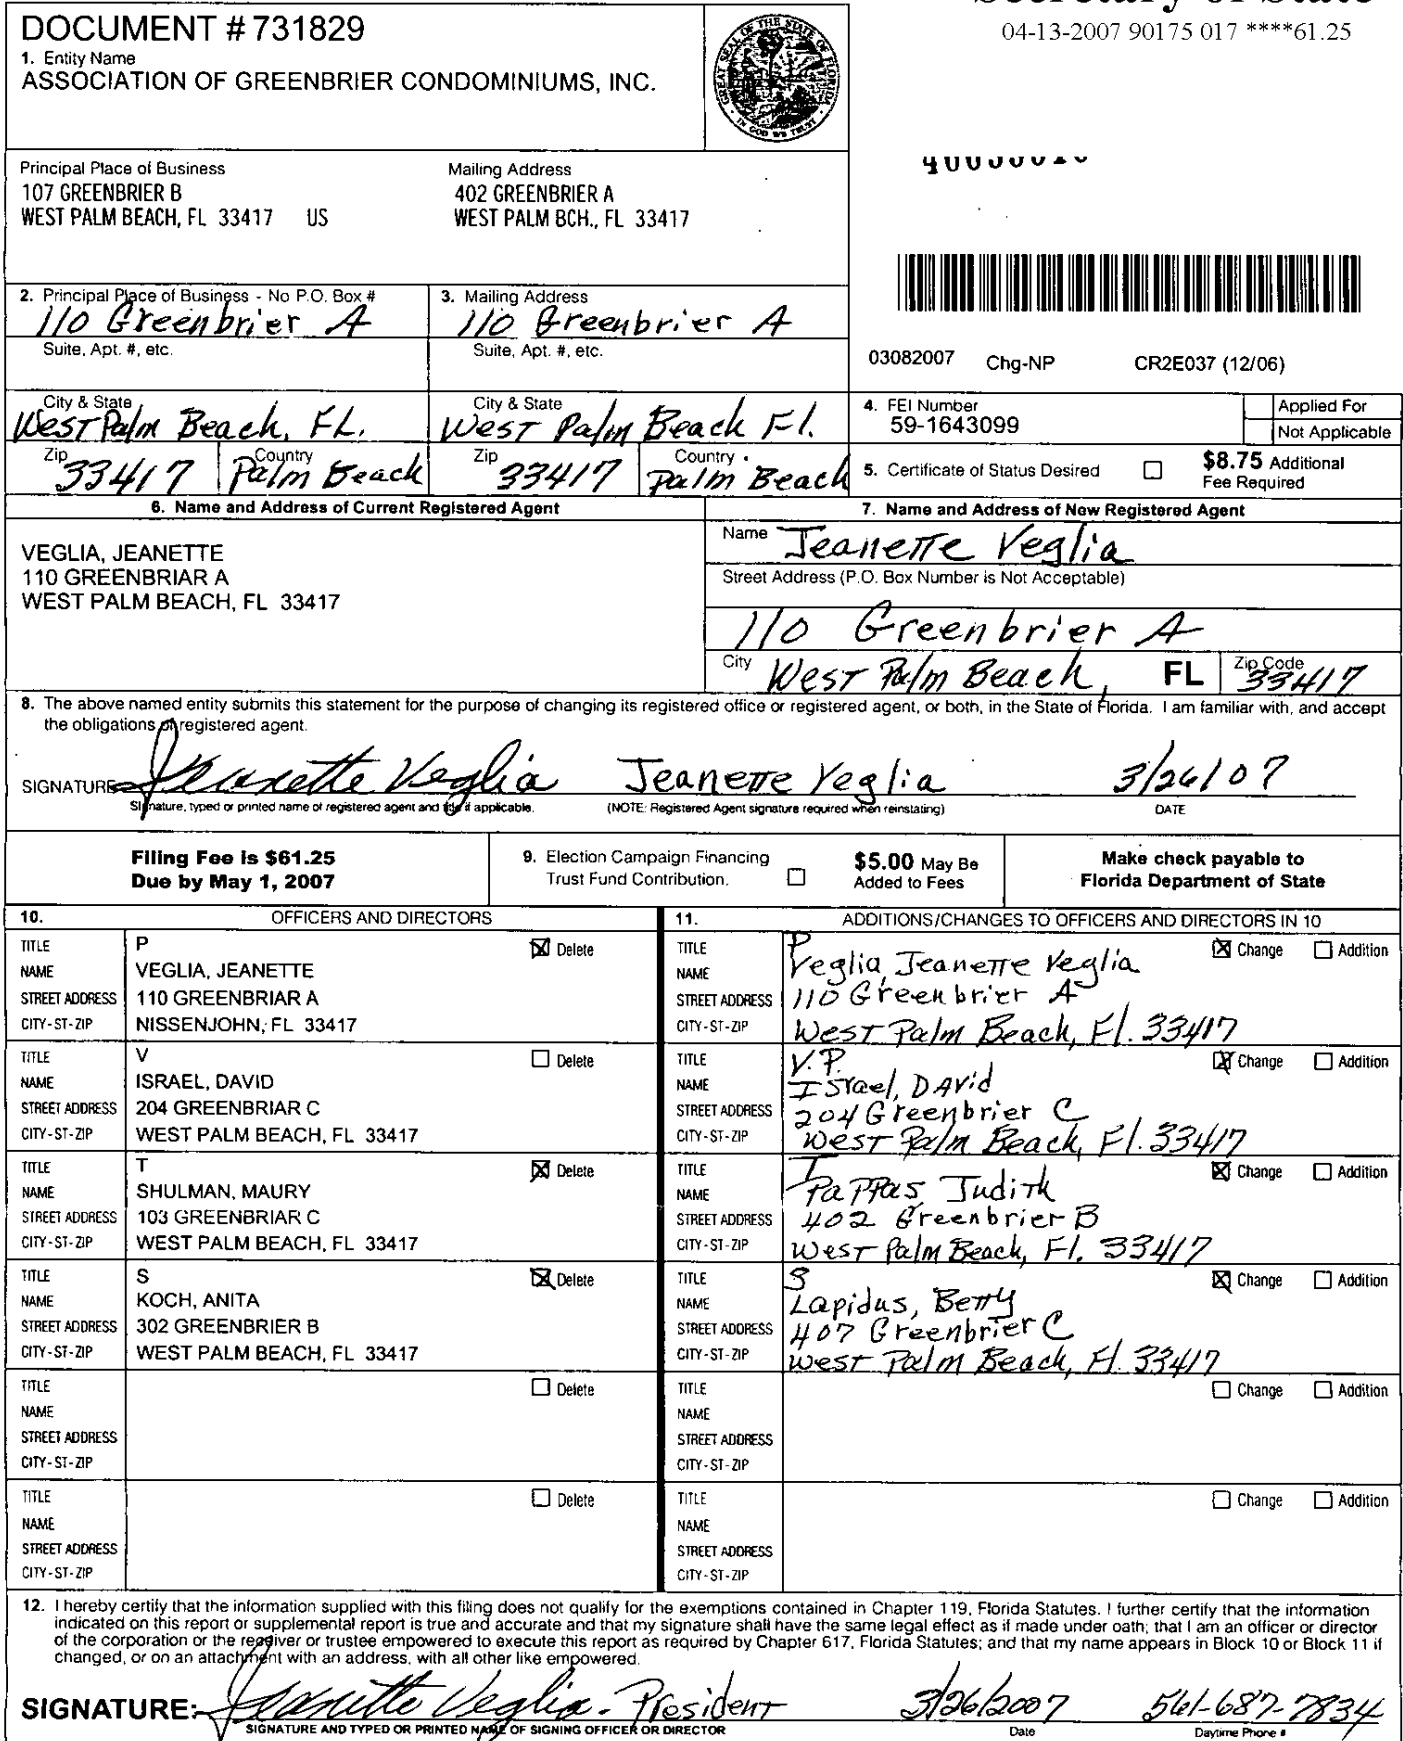 DOCUMENT # 731829
1. Entity Name
ASSOCIATION OF GREENBRIER CONDOMINIUMS, INC.
GREAT SEAL OF THE STATE OF FLORIDA
IN GOD WE TRUST
Secretary of State
04-13-2007 90175 017 ****61.25
Principal Place of Business
107 GREENBRIER B
WEST PALM BEACH, FL 33417 US
Mailing Address
402 GREENBRIER A
WEST PALM BCH., FL 33417
2. Principal Place of Business - No P.O. Box #
110 Greenbrier A
Suite, Apt. #, etc.
3. Mailing Address
110 Greenbrier A
Suite, Apt. #, etc.
03082007 Chg-NP CR2E037 (12/06)
City & State
West Palm Beach, FL.
City & State
West Palm Beach Fl.
Zip
33417
Country
Palm Beach
Zip
33417
Country
Palm Beach
4. FEI Number
59-1643099
Applied For
Not Applicable
5. Certificate of Status Desired
$8.75 Additional
Fee Required
6. Name and Address of Current Registered Agent
VEGLIA, JEANETTE
110 GREENBRIAR A
WEST PALM BEACH, FL 33417
7. Name and Address of New Registered Agent
Name Jeanette Veglia
Street Address (P.O. Box Number is Not Acceptable)
110 Greenbrier A
City West Palm Beach, FL Zip Code 33417
8. The above named entity submits this statement for the purpose of changing its registered office or registered agent, or both, in the State of Florida. I am familiar with, and accept
the obligations of registered agent.
SIGNATURE Jeanette Veglia Jeanette Veglia 3/26/07
Signature, typed or printed name of registered agent and title if applicable. (NOTE: Registered Agent signature required when reinstating) DATE
Filing Fee is $61.25
Due by May 1, 2007
9. Election Campaign Financing
Trust Fund Contribution.
$5.00 May Be
Added to Fees
Make check payable to
Florida Department of State
10. OFFICERS AND DIRECTORS
11. ADDITIONS/CHANGES TO OFFICERS AND DIRECTORS IN 10
TITLE P Delete
NAME VEGLIA, JEANETTE
STREET ADDRESS 110 GREENBRIAR A
CITY-ST-ZIP NISSENJOHN, FL 33417
TITLE P Change Addition
NAME Veglia, Jeanette Veglia
STREET ADDRESS 110 Greenbrier A
CITY-ST-ZIP West Palm Beach, Fl. 33417
TITLE V Delete
NAME ISRAEL, DAVID
STREET ADDRESS 204 GREENBRIAR C
CITY-ST-ZIP WEST PALM BEACH, FL 33417
TITLE V.P. Change Addition
NAME Israel, David
STREET ADDRESS 204 Greenbrier C
CITY-ST-ZIP West Palm Beach, Fl. 33417
TITLE T Delete
NAME SHULMAN, MAURY
STREET ADDRESS 103 GREENBRIAR C
CITY-ST-ZIP WEST PALM BEACH, FL 33417
TITLE T Change Addition
NAME Pappas Judith
STREET ADDRESS 402 Greenbrier B
CITY-ST-ZIP West Palm Beach, Fl. 33417
TITLE S Delete
NAME KOCH, ANITA
STREET ADDRESS 302 GREENBRIER B
CITY-ST-ZIP WEST PALM BEACH, FL 33417
TITLE S Change Addition
NAME Lapidus, Betty
STREET ADDRESS 407 Greenbrier C
CITY-ST-ZIP West Palm Beach, Fl. 33417
TITLE Delete
NAME
STREET ADDRESS
CITY-ST-ZIP
TITLE Change Addition
NAME
STREET ADDRESS
CITY-ST-ZIP
TITLE Delete
NAME
STREET ADDRESS
CITY-ST-ZIP
TITLE Change Addition
NAME
STREET ADDRESS
CITY-ST-ZIP
12. I hereby certify that the information supplied with this filing does not qualify for the exemptions contained in Chapter 119, Florida Statutes. I further certify that the information
indicated on this report or supplemental report is true and accurate and that my signature shall have the same legal effect as if made under oath; that I am an officer or director
of the corporation or the receiver or trustee empowered to execute this report as required by Chapter 617, Florida Statutes; and that my name appears in Block 10 or Block 11 if
changed, or on an attachment with an address, with all other like empowered.
SIGNATURE: Jeanette Veglia - President 3/26/2007 561-687-7834
SIGNATURE AND TYPED OR PRINTED NAME OF SIGNING OFFICER OR DIRECTOR Date Daytime Phone #